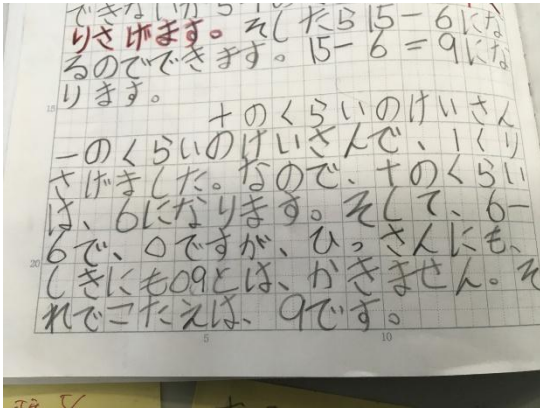 できないから51
りさげます。そしたら15-6にな
るのでできます。15-6=9にな
ります。
十のくらいのけいさん
一のくらいのけいさんで、1くり
さげました。なので、十のくらい
は、6になります。そして、6-
6で、0ですが、ひっさんにも、
しきにも09とは、かきません。そ
れでこたえは、9です。
15
20
5
10